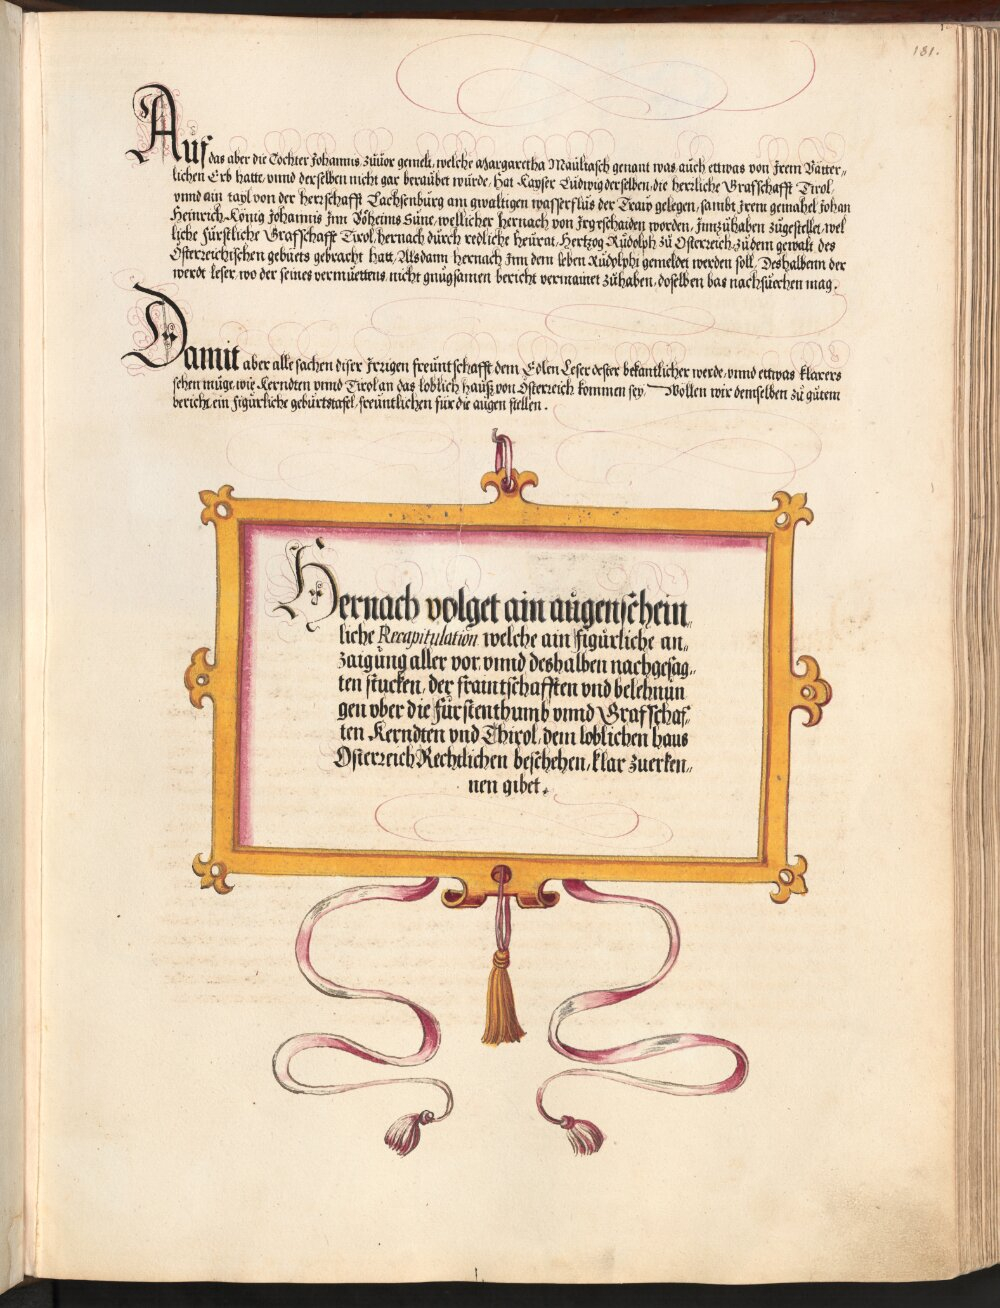 131.
Auf das aber die Tochter Johannis zuuor gemelt, welche Margaretha Maultasch genant was auch ettwas von Irem Vätter-
lichen Erb hatte, vnnd derselben nicht gar beraubet würde, hat Kayser Ludwig derselben, die herzliche Grafschafft Tirol,
vnnd ain tayl von der herrschafft Lachsenburg am gwaltigen wasserflus der Traw gelegen, sambt Irem gemahel Johan
Heinrich, König Johannis Inn Böheims Sune, wellicher hernach von Ir geschaiden worden, Innzuhaben zugestellet, wel
liche fürstliche Grafschafft Tirol, hernach durch redliche heurat, Hertzog Rudolph zu Osterreich, zu dem gewalt des
Osterreichischen gebuets gebracht hatt, Alsdann hernach Inn dem leben Rudolphi gemeldet werden soll, Deshalbenn der
werdt leser, wo der seines vermuettens, nicht gnugsamen bericht vermainet zuhaben, doselben bas nachsuechen mag.
Damit aber alle sachen diser Irzigen freuntschafft dem Edlen Leser dester bekantlicher werde, vnnd ettwas klarers
sehen müge, wie Kerndten vnnd Tirol an das loblich hauß von Osterreich kommen sey, Wöllen wir demselben zu gutem
bericht, ein figurliche geburtstafel, freuntlichen für die augen stellen.
Hernach volget ain augenschein
liche Recapitulation welche ain figurliche an
zaigung aller vor, vnnd deshalben nachgesag
ten stucken, der fraintschafften vnd belehnun
gen vber die fürstenthumb vnnd Grafschaf
ten Kerndten vnd Thirol, dem loblichen haus
Osterreich Rechtlichen beschehen, klar zuerken
nen gibet.